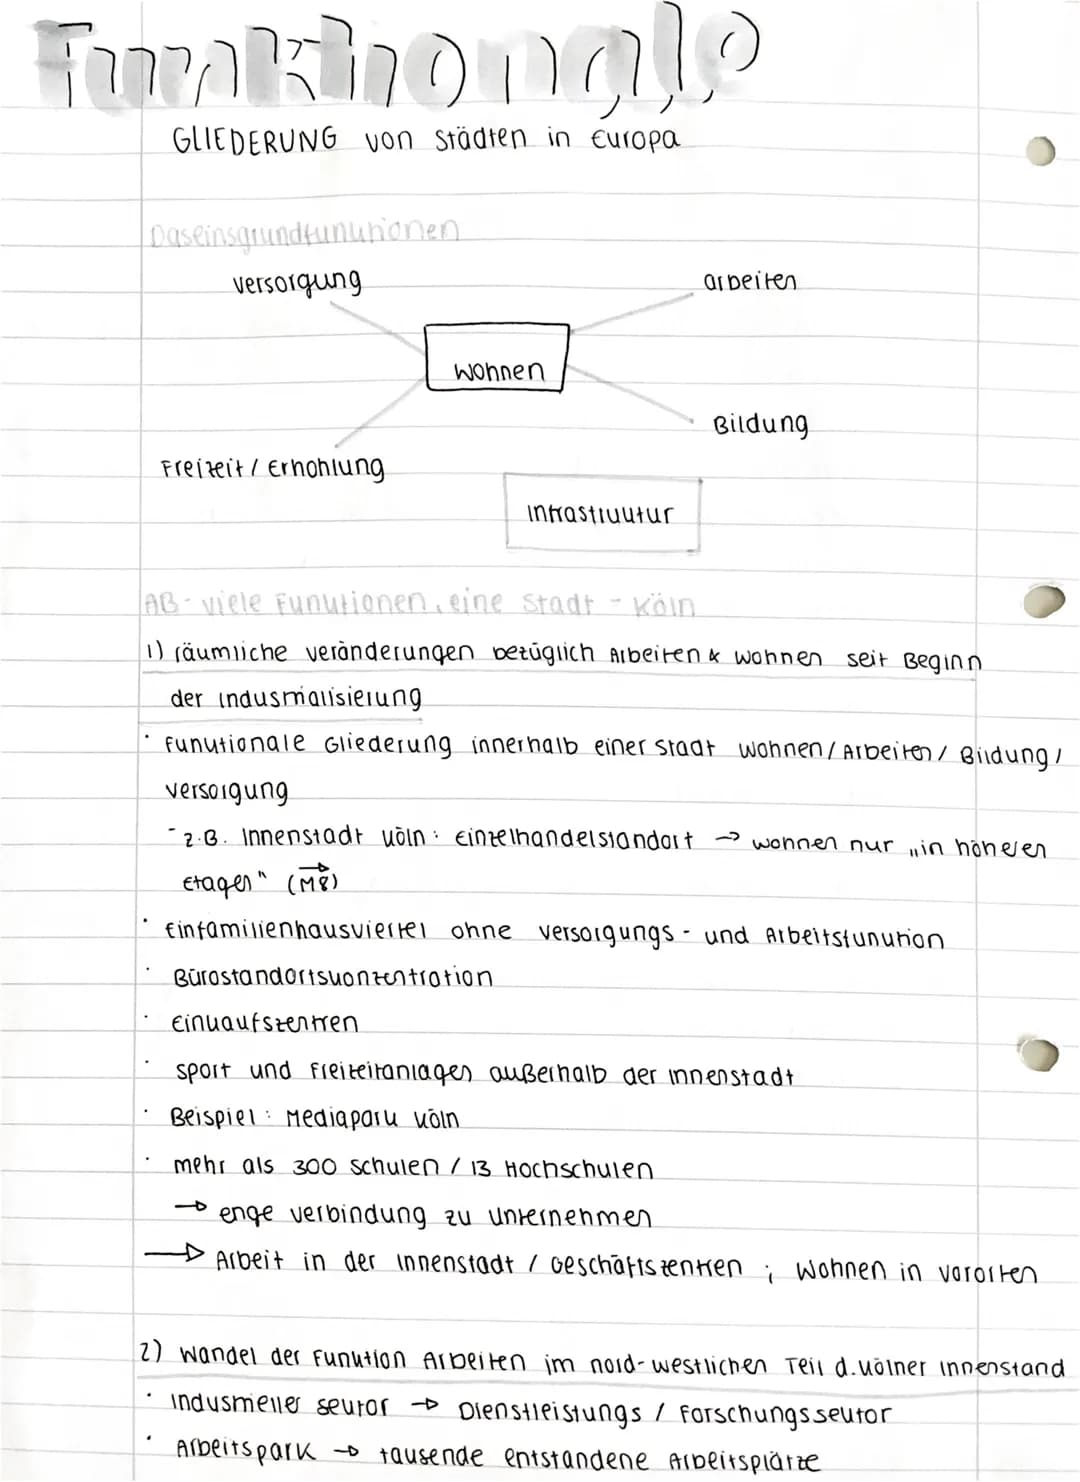 Funktionale
GLIEDERUNG von Städten in Europa
Daseinsgrundfunktionen
Versorgung
arbeiten
Wohnen
Bildung
Freizeit / Erhohlung
Infrastruktur
AB - viele Funktionen, eine Stadt - Köln
1) räumliche Veränderungen bezüglich Arbeiten & Wohnen seit Beginn
der Industrialisierung
· Funktionale Gliederung innerhalb einer Stadt Wohnen / Arbeiten / Bildung /
Versorgung
- z.B. Innenstadt Köln: Einzelhandelstandort → wohnen nur „in höheren
Etagen" (M8)
· Einfamilienhausviertel ohne Versorgungs- und Arbeitsfunktion
· Bürostandortskonzentration
· Einkaufszentren
· Sport und Freizeitanlagen außerhalb der Innenstadt
· Beispiel: Mediapark Köln
· mehr als 300 Schulen / 13 Hochschulen
→ enge Verbindung zu Unternehmen
→ Arbeit in der Innenstadt / Geschäftszentren ; Wohnen in Vororten
2) Wandel der Funktion Arbeiten im nord-westlichen Teil d. Kölner Innenstand
· Industrieller Sektor → Dienstleistungs / Forschungssektor
· Arbeitspark → tausende entstandene Arbeitsplätze